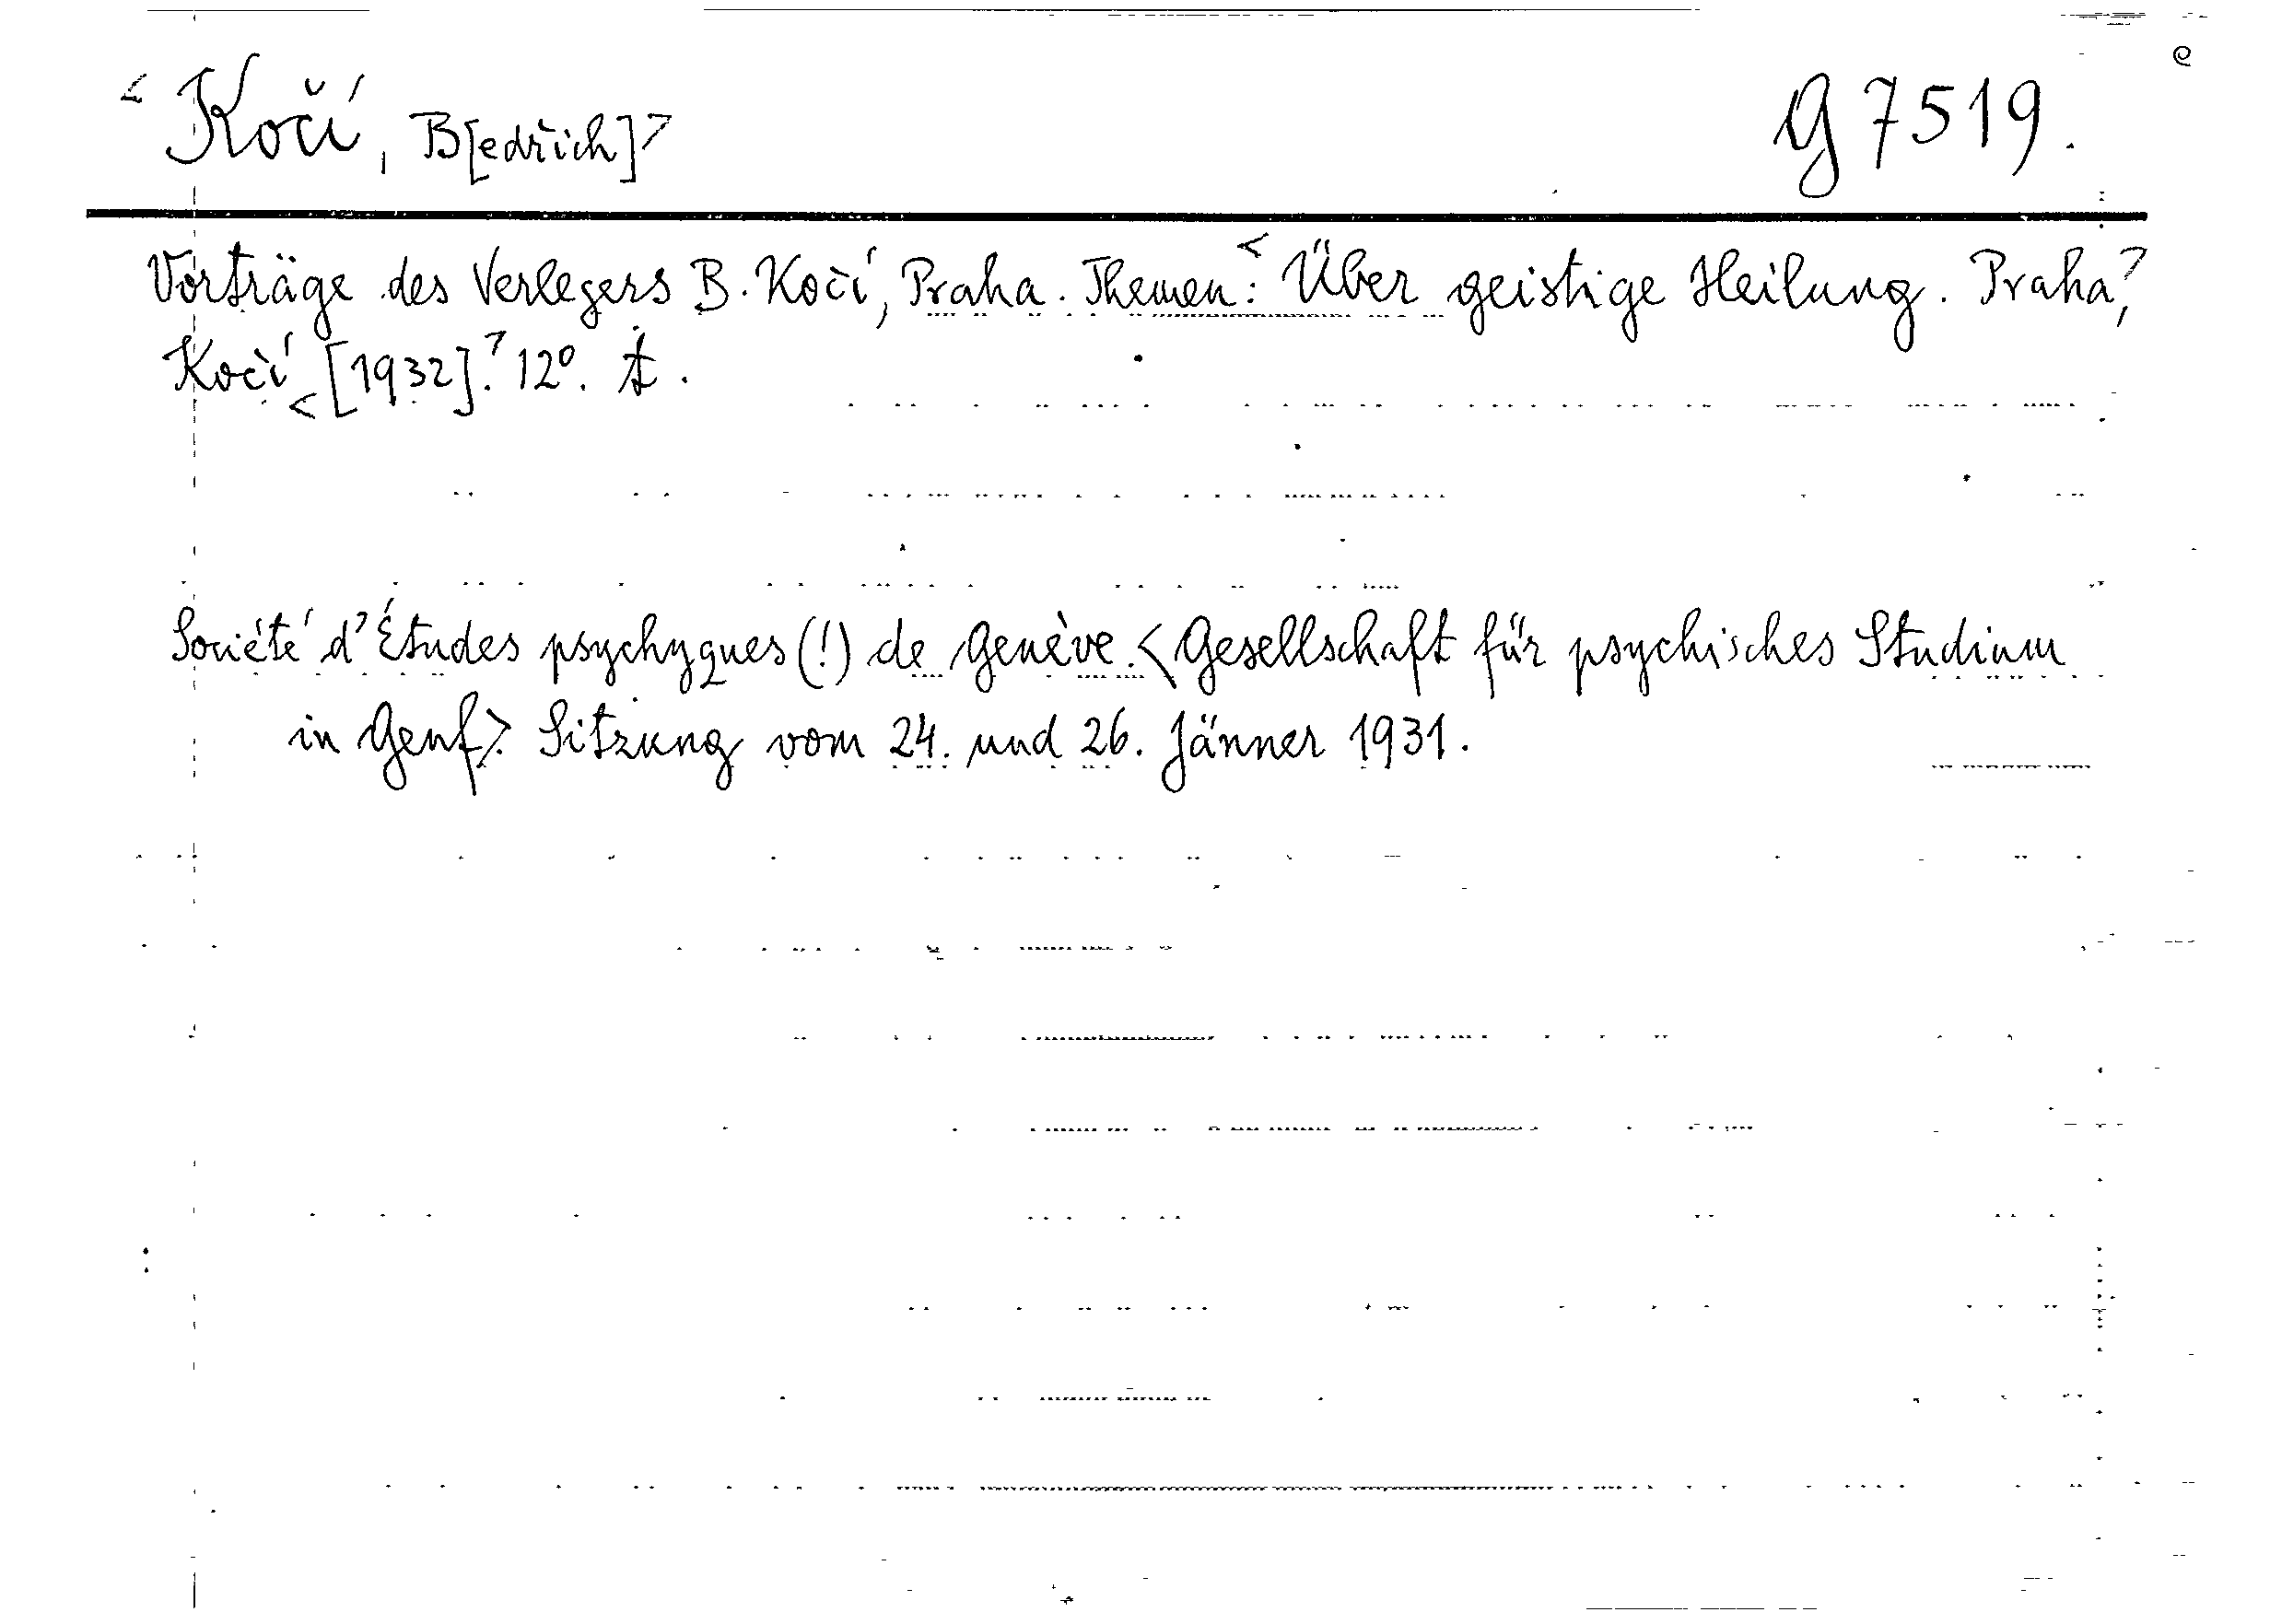 <Kočí, B[edřich]> G 7519.
Vorträge des Verlegers B. Kočí, Praha. Themen: <Über geistige Heilung. Praha>,
Kočí <[1932].> 12°.
Société d'Études psychyques (!) de Genève. <Gesellschaft für psychisches Studium
in Genf>. Sitzung vom 24. und 26. Jänner 1931.